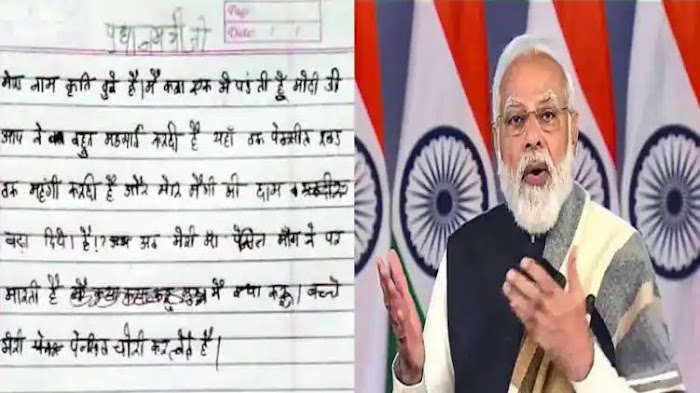 Page:
Date: / /
प्रधानमंत्री जी
मेरा नाम कृति दुबे है। मैं कक्षा एक में पढती हूँ मोदी जी
आप ने बहुत महगाई करदी है यहाँ तक पेनसील रबड
तक महंगी करदी है और मेरी मैगी की दाम
बढा दिये है। अब मेरी मा पेंसिल माँग ने पर
मारती है मैं क्या करू। बच्चे
मेरी पेन्सिल चोरी कर लेते है।